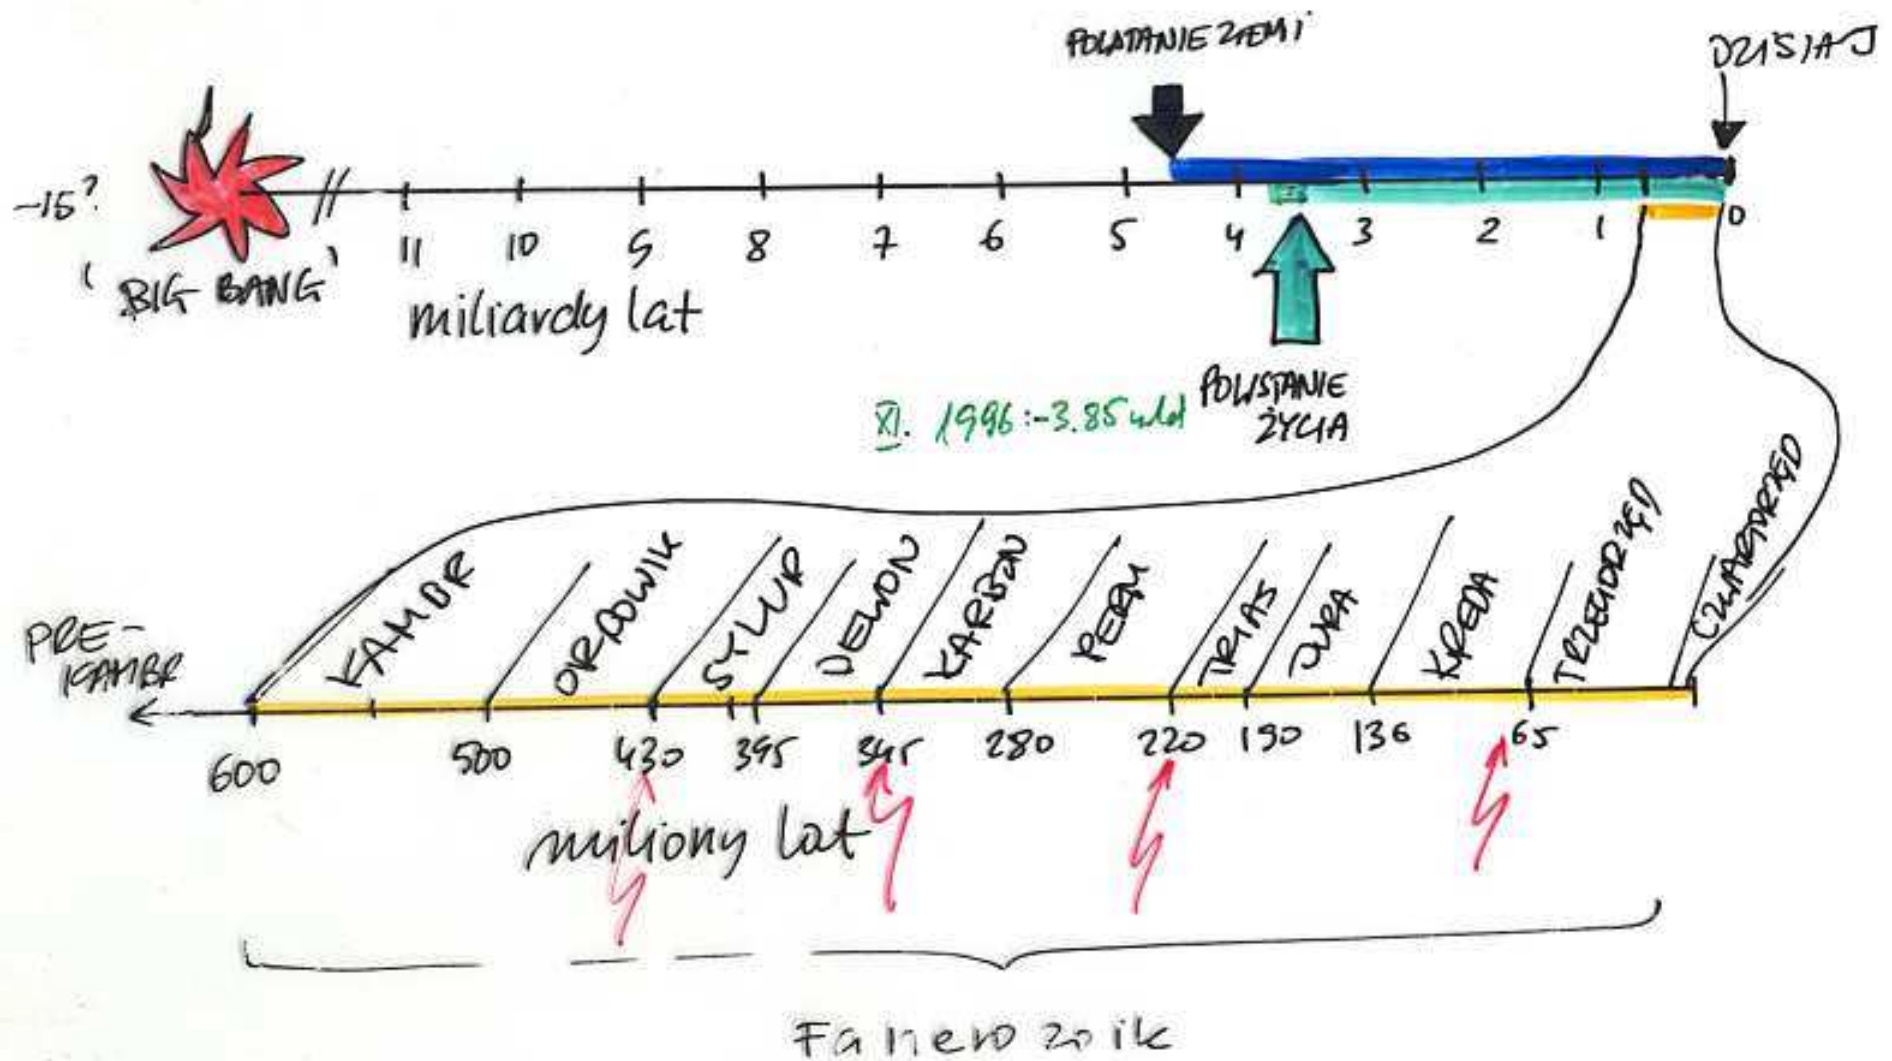 POWSTANIE ZIEMI
DZISIAJ
-15?
'BIG BANG'
11 10 9 8 7 6 5 4 3 2 1 0
miliardy lat
POWSTANIE
ŻYCIA
XI. 1996:-3.85 mld
PRE-
KAMBR
KAMBR ORDOWIK SYLUR DEWON KARBON PERM TRIAS JURA KREDA TRZECIORZĘD CZWARTORZĘD
600 500 430 395 345 280 220 190 136 65
miliony lat
Fanerozoik